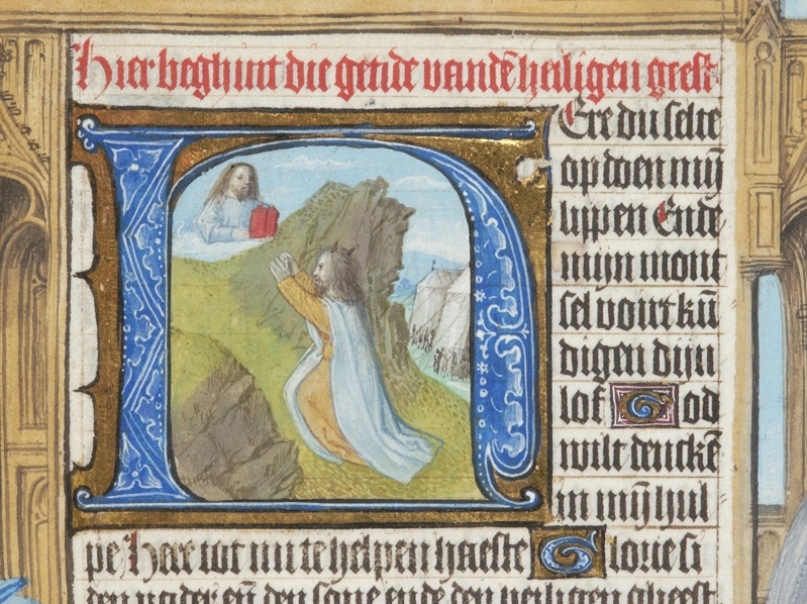 Hier beghint die getide vandē heiligen geest
HEre du selte
op doen mijn
lippen Ende
mijn mont
sel voirt kū
digen dijn
lof God
wilt denckē
in mijn hul
pe Here tot mi te helpen haeste Glorie si
den vader eñ den sone ende den heiligen gheest